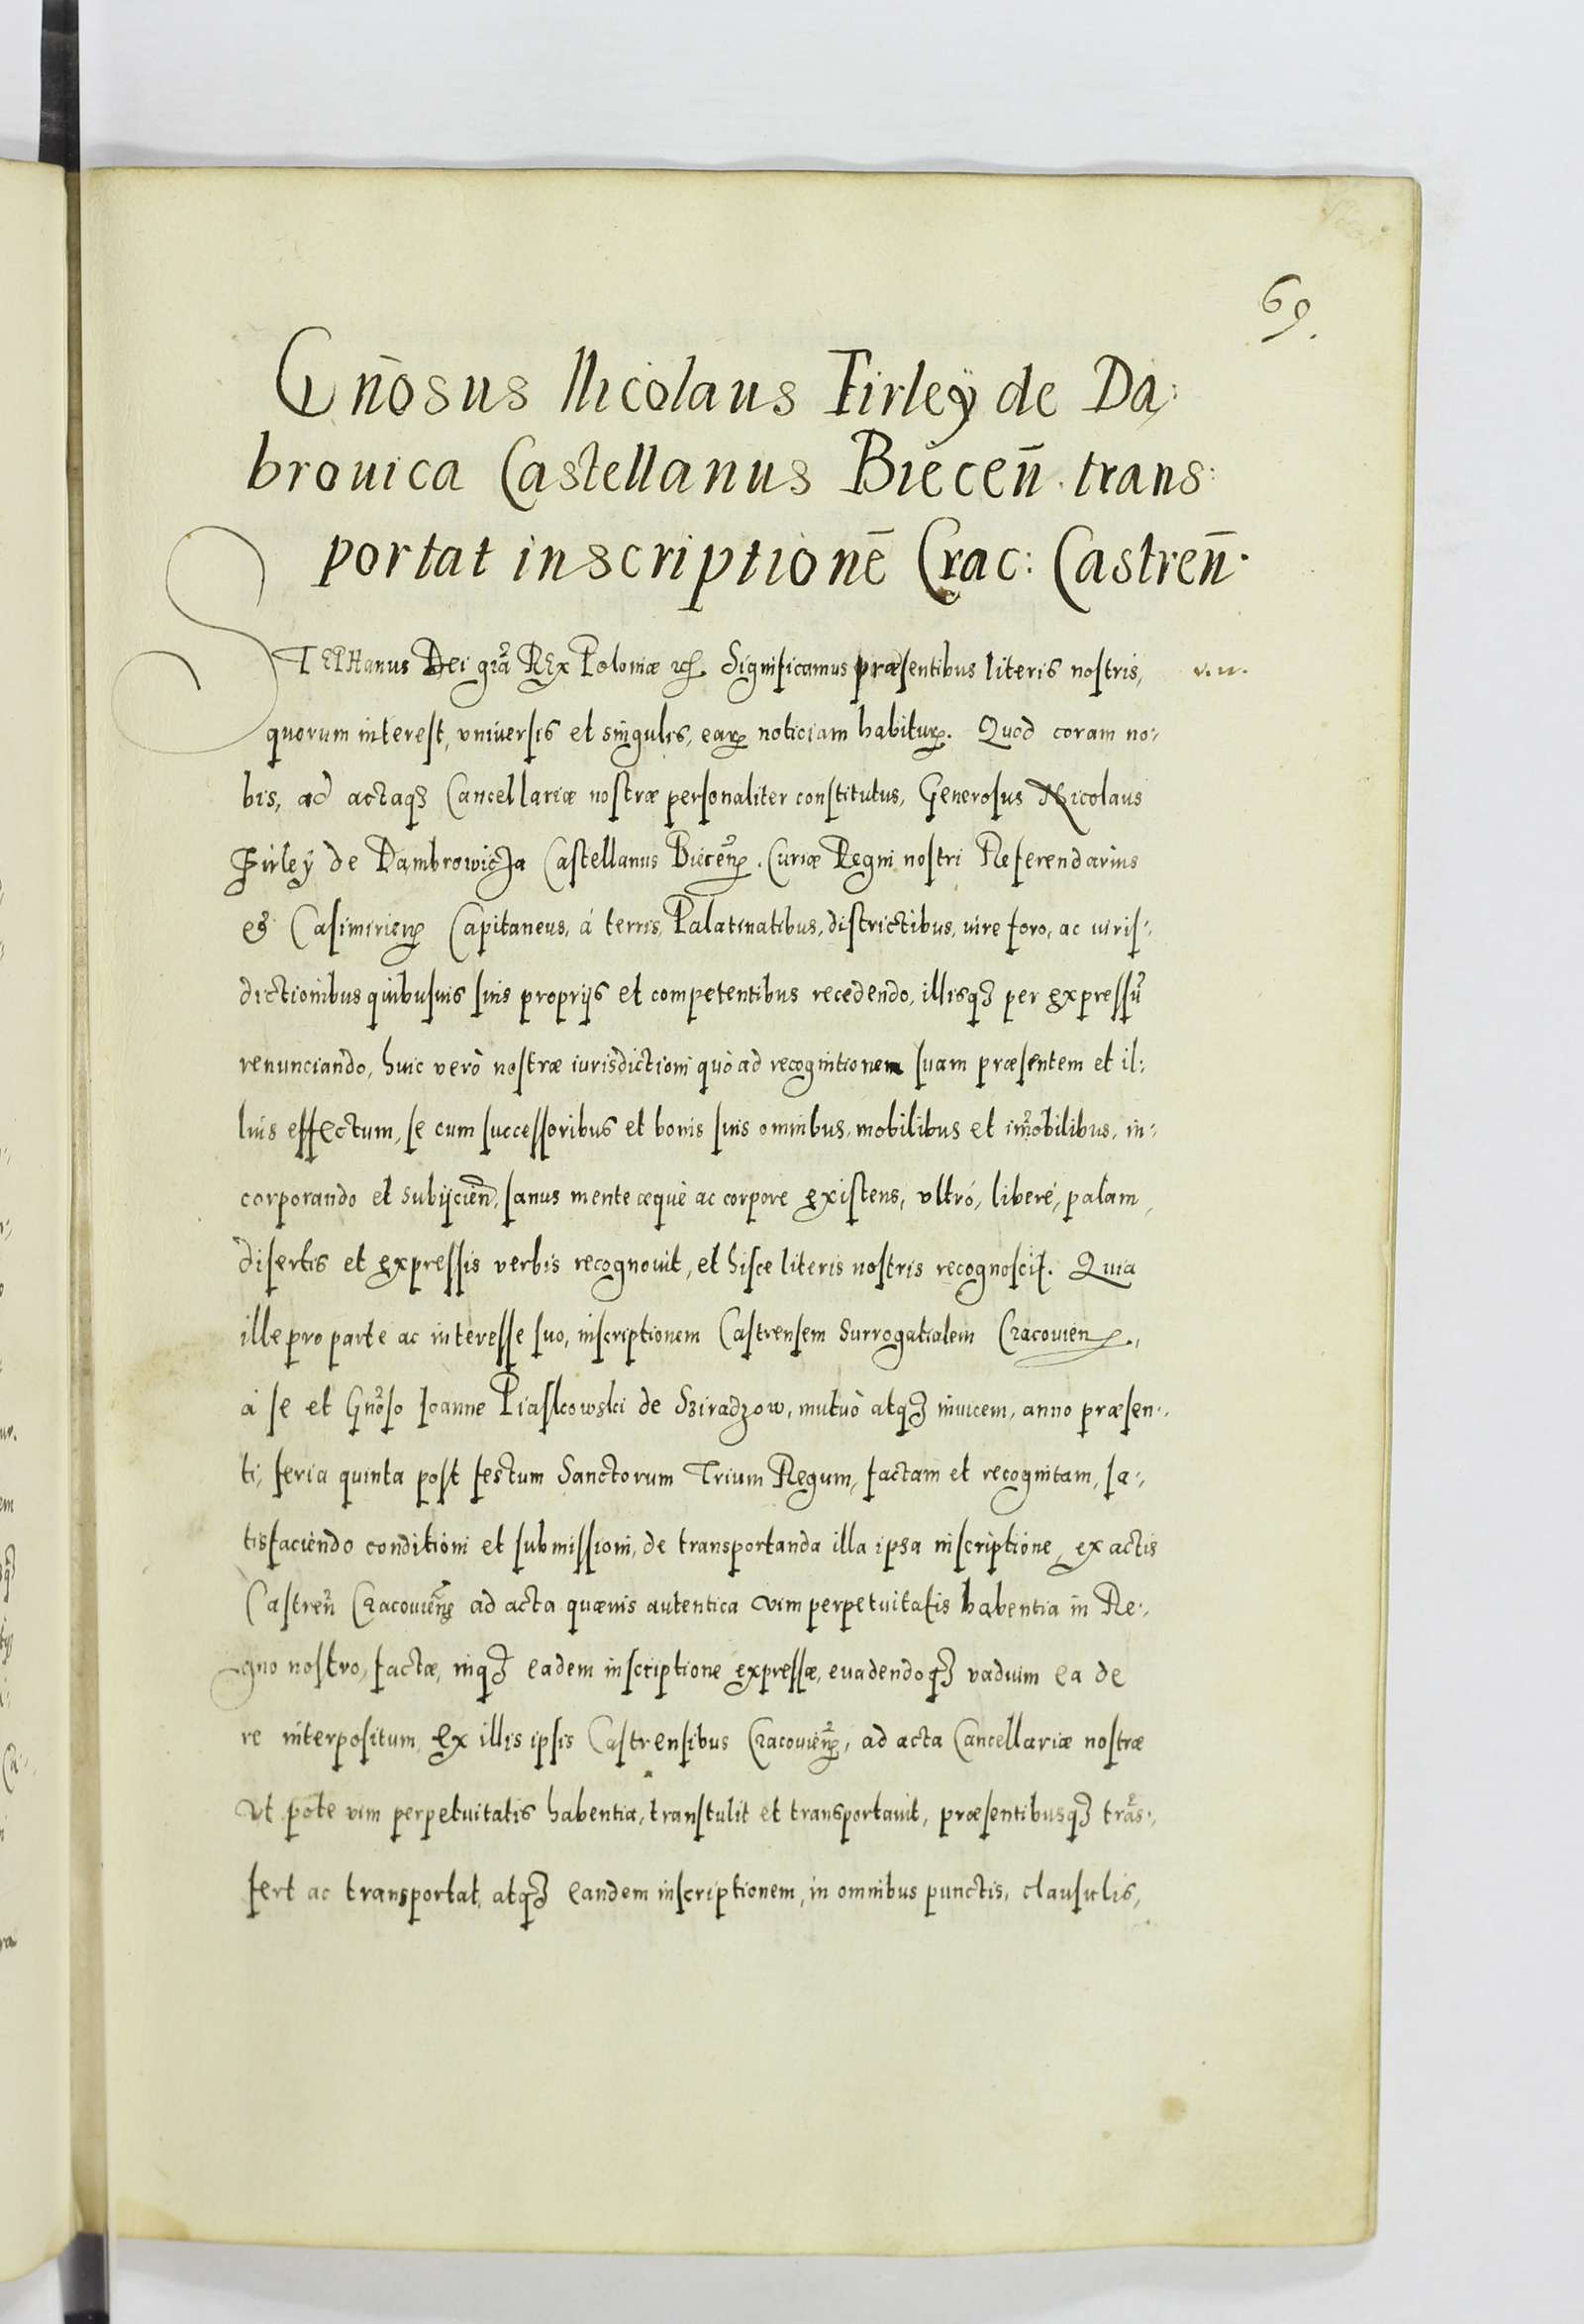 69.
Gn̄osus Nicolaus Firleÿ de Da:
brouica Castellanus Biecen̄. trans:
portat inscriptionē Crac: Castren̄.
STEPHanus Dei grã REx Poloniæ etc̃. Significamus præsentibus literis nostris, v. u.
quorum interest, vniuersis et singulis, earꝝ noticiam habiturꝝ. Quod coram no:
bis, ad actaqȝ Cancellariæ nostræ personaliter constitutus, Generosus Nicolaus
Firleÿ de Dambrowicza Castellanus Biecen̄. Curiæ Regni nostri Referendarius
et Casimirien̄ Capitaneus, á terris, Palatinatibus, districtibus, iure foro, ac iuris:
dictionibus quibusuis suis proprijs et competentibus recedendo, illisqȝ per expressũ
renunciando, huic verò nostræ iurisdictioni quò ad recognitionem suam præsentem et il:
lius effectum, se cum successoribus et bonis suis omnibus, mobilibus et im̃obilibus, in:
corporando et subijcien̄, sanus mente æquè ac corpore existens, vltró, liberé, palam,
disertis et expressis verbis recognouit, et hisce literis nostris recognoscit. Quia
ille pro parte ac interesse suo, inscriptionem Castrensem Surrogatialem Cracouien̄.,
á se et Gnõso Ioanne Piaskowski de Sziradzow, mutuò atqȝ inuicem, anno præsen:
ti, feria quinta post festum Sanctorum Trium Regum, factam et recognitam, sa:
tisfaciendo conditioni et submissioni, de transportanda illa ipsa inscriptione, ex actis
Castren̄ Cracouien̄ ad acta quæuis autentica vim perpetuitatis habentia in Re:
gno nostro, factæ, inqȝ eadem inscriptione expressæ, euadendoqȝ vadium ea de
re interpositum, Ex illis ipsis Castrensibus Cracouien̄, ad acta Cancellariæ nostræ
vt pote vim perpetuitatis habentia, transtulit et transportauit, præsentibusqȝ trãs:
fert ac transportat, atqȝ eandem inscriptionem, in omnibus punctis, clausulis,